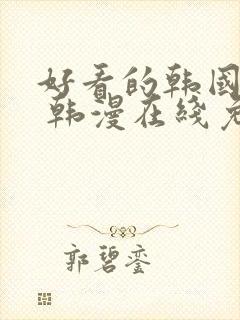 好看的韩国
韩漫在线免
郭碧銮